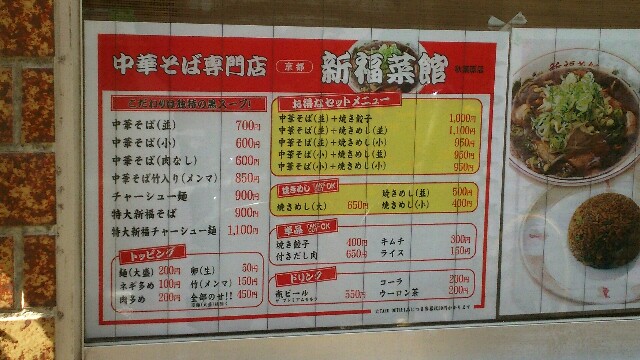 中華そば専門店 京都 新福菜館 秋葉原店
こだわりの独特の黒スープ!
中華そば(並) 700円
中華そば(小) 600円
中華そば(肉なし) 600円
中華そば竹入り(メンマ) 850円
チャーシュー麺 900円
特大新福そば 900円
特大新福チャーシュー麺 1,100円
トッピング
麺(大盛) 200円 卵(生) 50円
ネギ多め 100円 竹(メンマ) 150円
肉多め 200円 全部のせ!! 450円
お得なセットメニュー
中華そば(並)+焼き餃子 1,000円
中華そば(並)+焼きめし(並) 1,100円
中華そば(並)+焼きめし(小) 950円
中華そば(小)+焼きめし(並) 950円
中華そば(小)+焼きめし(小) 950円
焼きめし OK
焼きめし(並) 500円
焼きめし(大) 650円 焼きめし(小) 400円
単品 OK
焼き餃子 400円 キムチ 300円
付きだし肉 650円 ライス 150円
ドリンク
生ビール 550円 コーラ 200円
ウーロン茶 200円